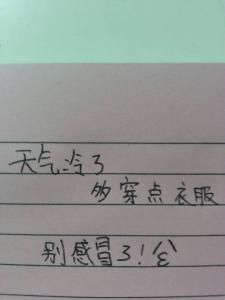 天气冷了
多穿点衣服
别感冒了!